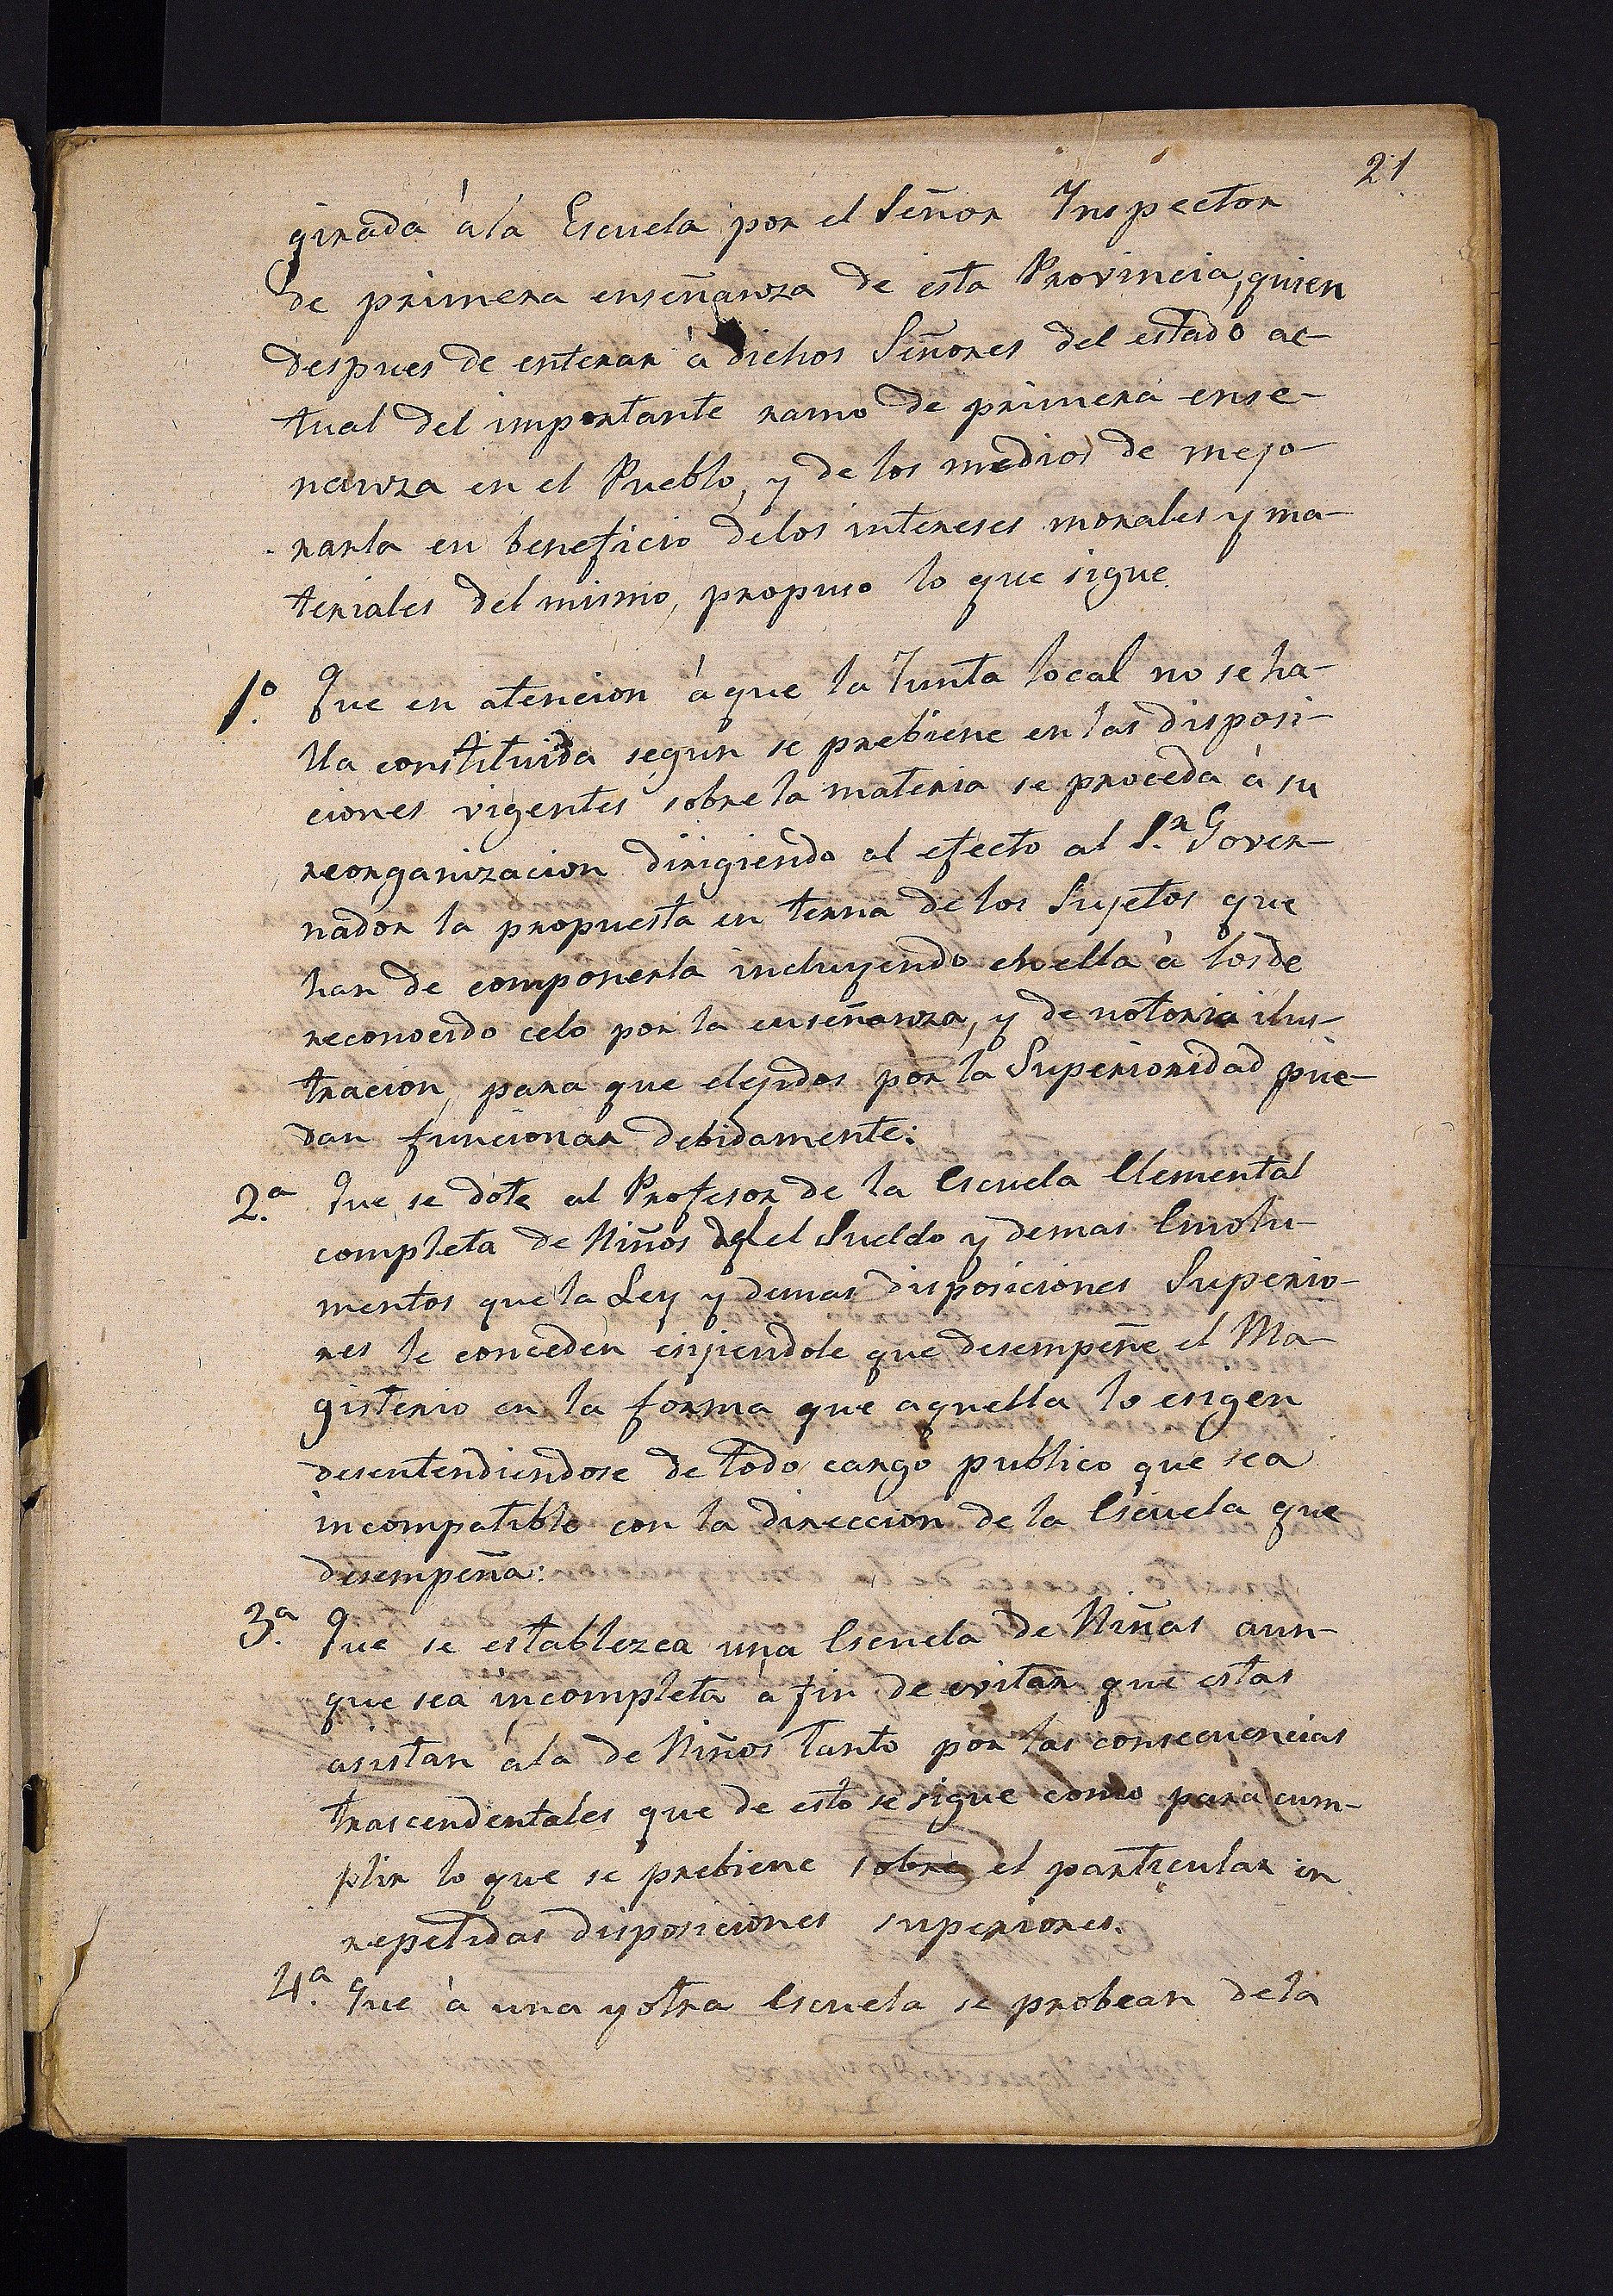 21
girada á la Escuela por el Señor Inspector
de primera enseñanza de esta Provincia, quien
despues de enterar á dichos Señores del estado ac-
tual del importante ramo de primera ense-
nanza en el Pueblo, y de los medios de mejo-
rarla en beneficio delos intereses morales y ma-
teriales del mismo, propuso lo que sigue.
1.º Que en atencion á que la Junta local no se ha-
lla constituida segun se prebiene en las disposi-
ciones vigentes sobre la materia se proceda á su
reorganizacion dirigiendo al efecto al S.r Gover-
nador la propuesta en terna de los Sujetos que
han de componerla incluyendo en ella á los de
reconocido celo por la enseñanza, y de notoria ilus-
tracion, para que elejidos por la Superioridad pue-
dan funcionar debidamente:
2.ª Que se dote al Profesor de la Escuela Elemental
completa de Niños del el Sueldo y demas Emolu-
mentos que la Ley y demas disposiciones Superio-
res le conceden esijiendole que desempeñe el Ma-
gisterio en la forma que aquella lo esigen
desentendiendose de todo cargo publico que sea
incompatible con la direccion de la Escuela que
desempeña:
3.ª Que se establezca una Escuela de Niñas aun-
que sea incompleta á fin de evitar que estas
asistan á la de Niños tanto por las consecuencias
trascendentales que de esto se sigue como para cum-
plir lo que se prebiene sobre el particular en
repetidas disposiciones superiores.
4.ª Que á una y otra Escuela se probean de la